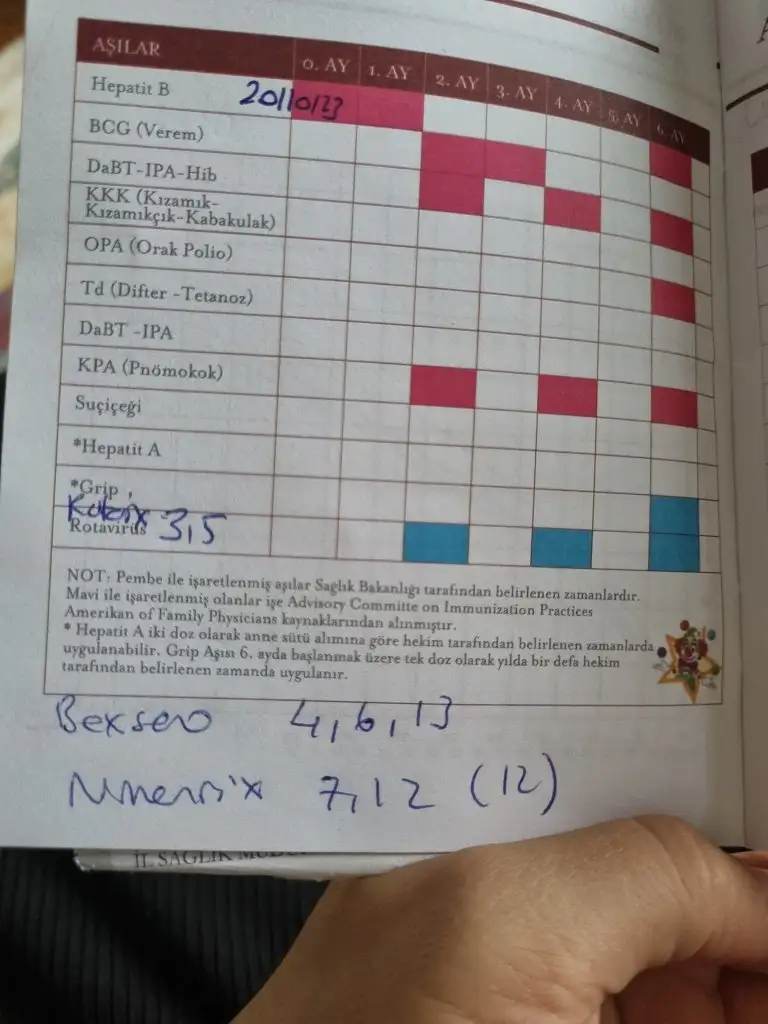 AŞILAR 0. AY 1. AY 2. AY 3. AY 4. AY 5. AY 6. AY
Hepatit B 20/10/23
BCG (Verem)
DaBT-IPA-Hib
KKK (Kızamık-
Kızamıkçık-Kabakulak)
OPA (Orak Polio)
Td (Difter -Tetanoz)
DaBT -IPA
KPA (Pnömokok)
Suçiçeği
*Hepatit A
*Grip
Rotavirüs 3,5
NOT: Pembe ile işaretlenmiş aşılar Sağlık Bakanlığı tarafından belirlenen zamanlardır.
Mavi ile işaretlenmiş olanlar işe Advisory Committe on Immunization Practices
Amerikan of Family Physicians kaynaklarından alınmıştır.
* Hepatit A iki doz olarak anne sütü alımına göre hekim tarafından belirlenen zamanlarda
uygulanabilir. Grip Aşısı 6. ayda başlanmak üzere tek doz olarak yılda bir defa hekim
tarafından belirlenen zamanda uygulanır.
Bexsero 4,6,13
Nimenrix 7,12 (12)
İL SAĞLIK